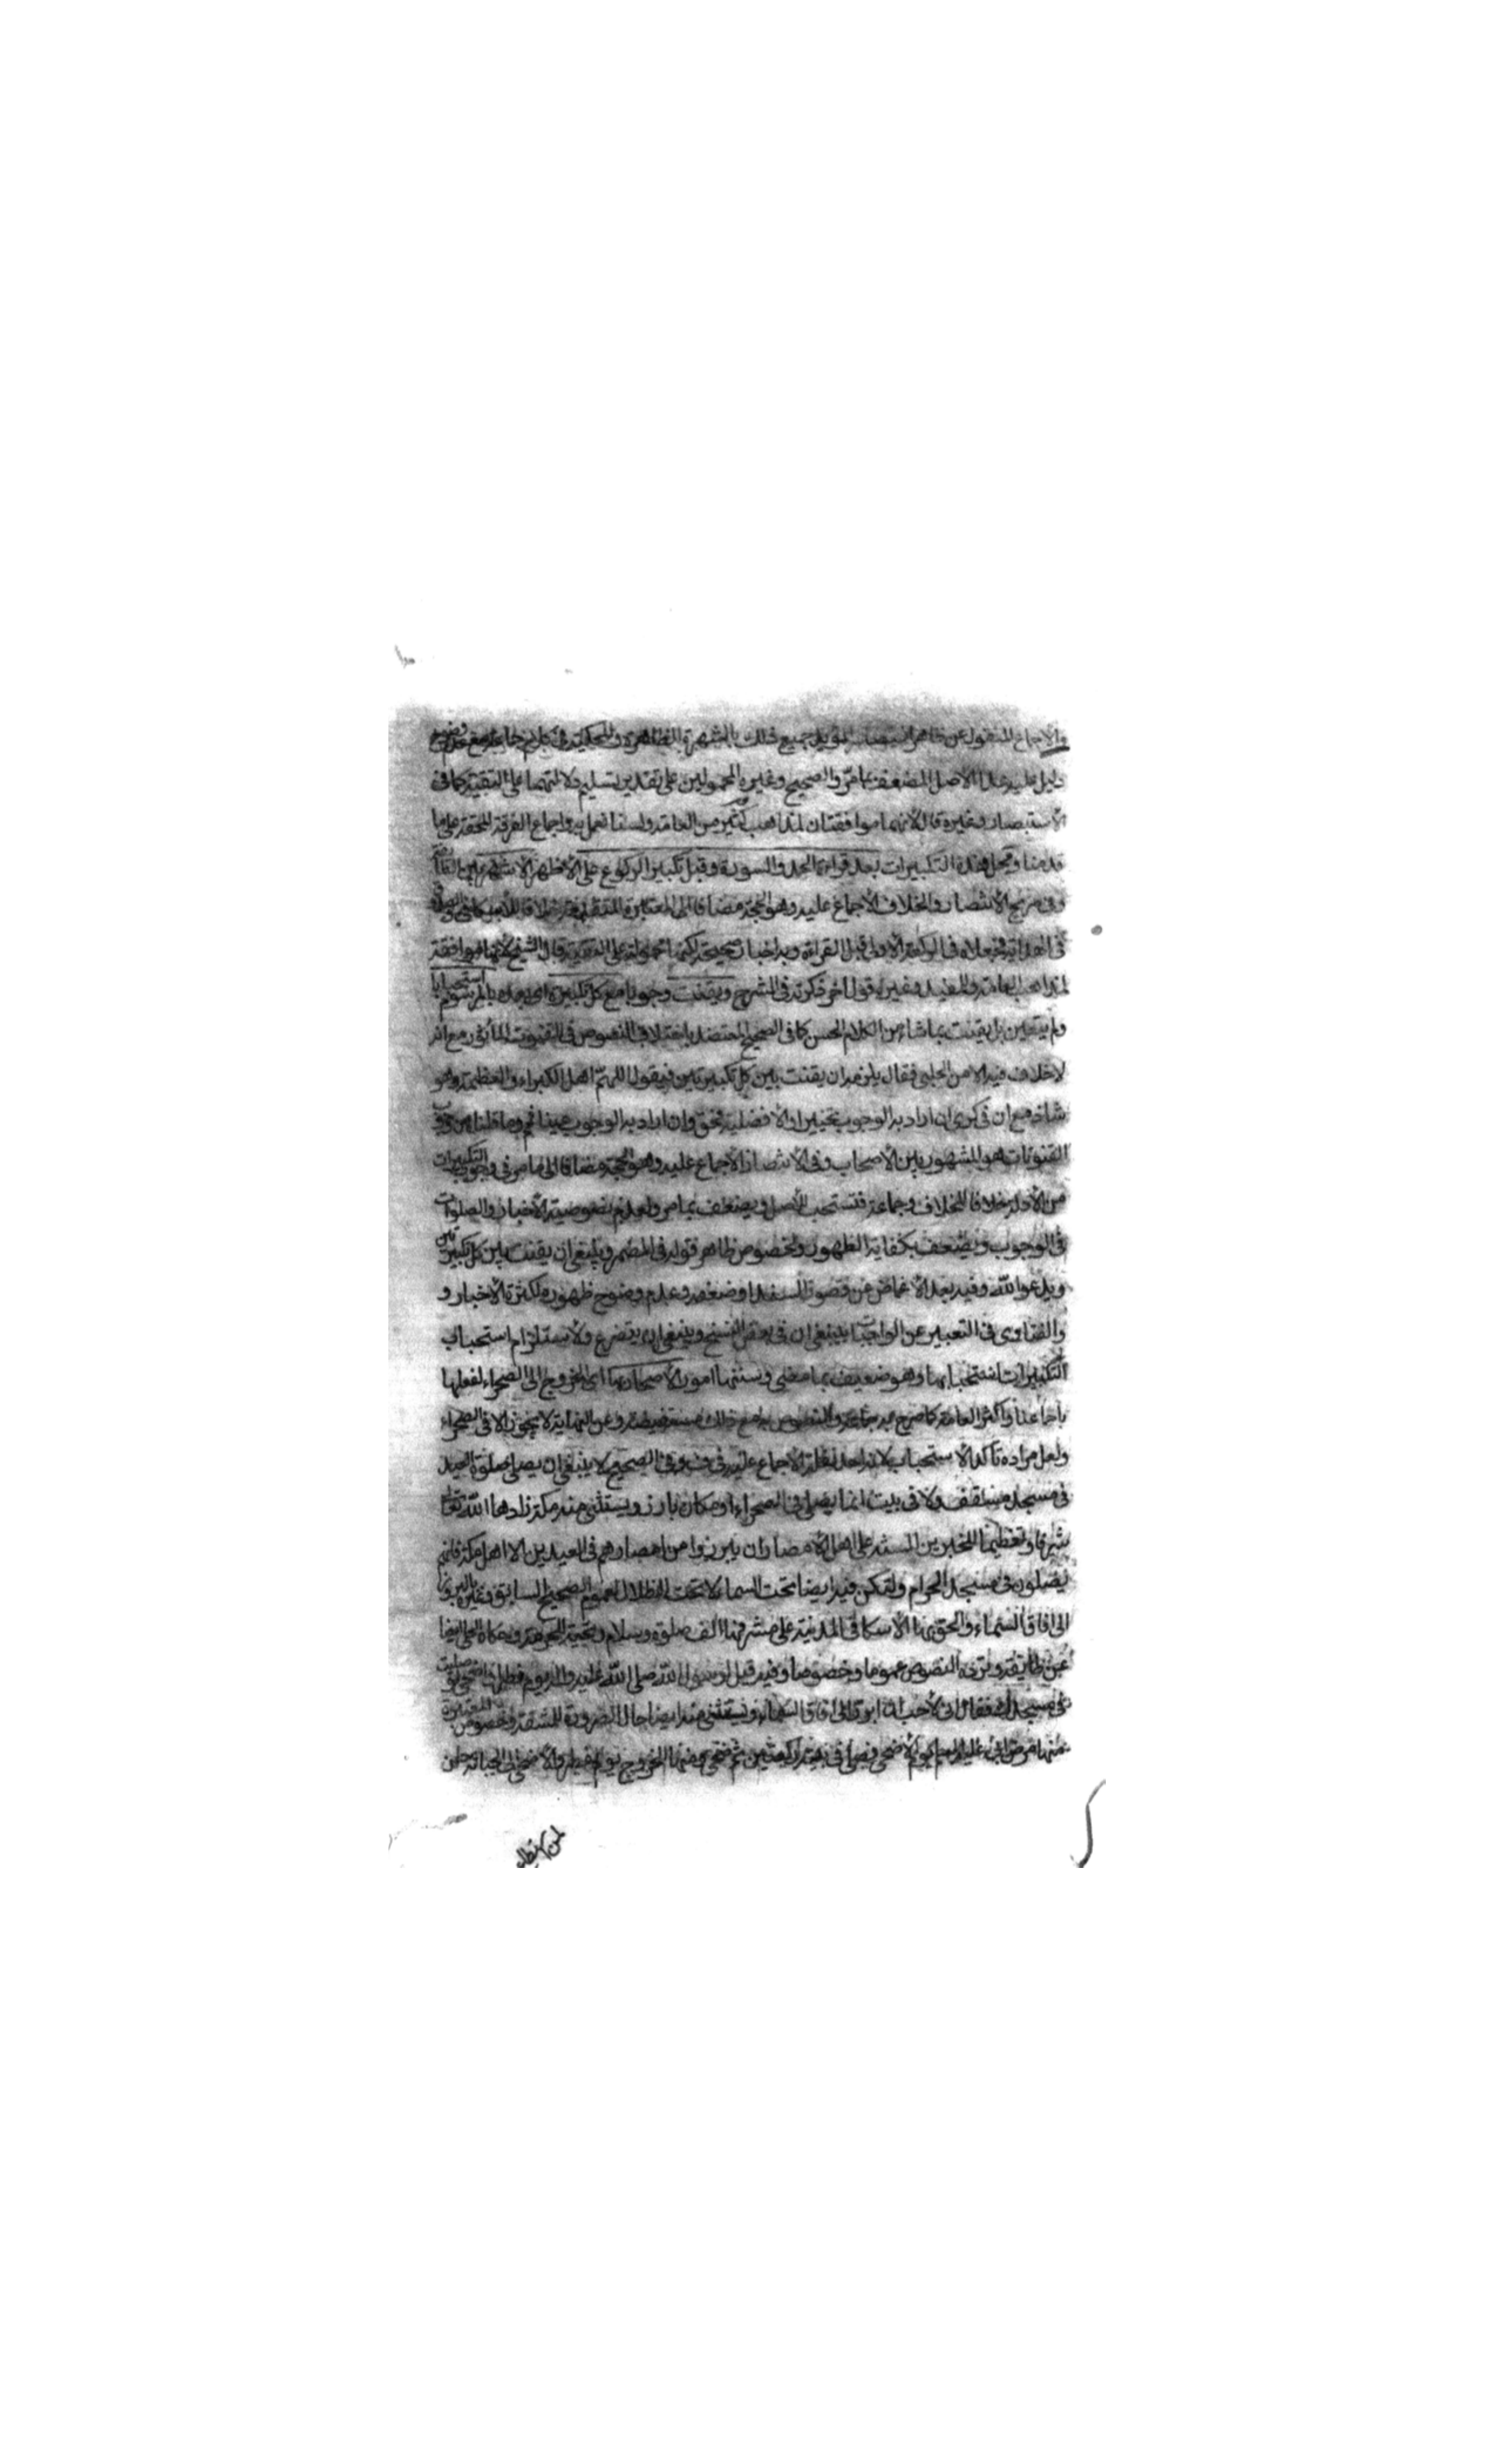 والاجماع المنقول عن ظاهر الاستبصار المؤيد جميع ذلك بالشهرة الظاهرة والمحكية في كلام جماعة مع عدم وضوح
دليل عليه عدا الاصل المضعف بما مر والصحيح وغيره المحمولين على تقدير تسليم دلالتهما على التقية كما في
الاستبصار وغيره قال لانهما موافقتان لمذاهب كثير من العامة ولسنا نعمل به واجماع الفرقة المحقة على ما
قدمنا ومحل هذه التكبيرات بعد قراءة الحمد والسورة وقبل تكبير الركوع على الاظهر الاشهر بين
وفي صريح الانتصار والخلاف الاجماع عليه وهو الحجة مضافا الى المعتبرة خلافا للاسكافي
في الهداية فجعلاه في الركعة الاولى قبل القراءة وبه اخبار صحيحة لكنها محمولة على التقية قال الشيخ لانها موافقة
لمذاهب العامة وللمفيد وغيره قول اخر ذكرته في الشرح ويقنت وجوبا مع كل تكبيرة اي بعده بالمرسوم استحبابا
ولم يتعين بل يقنت بما شاء من الكلام الحسن كما في الصحيح المعتضد باختلاف النصوص في القنوت المأثور مع انه
لا خلاف فيه الا من الحلبي فقال يلزمه ان يقنت بين كل تكبيرتين فيقول اللهم اهل الكبرياء والعظمة وهو
شاذ مع ان في كرى ان اراد به الوجوب تخييرا والافضلية فحق وان اراد به الوجوب عينا فم وما قلنا من وجوب
القنوتات هو المشهور بين الاصحاب وفي الانتصار الاجماع عليه وهو الحجة مضافا الى ما مر في وجوب التكبيرات
من الادلة خلافا للخلاف وجماعة فتستحب للاصل ويضعف بما مر ولعدم نصوصية الاخبار والصلوات
في الوجوب ويضعف بكفاية الظهور ولخصوص ظاهر قوله في المضمر وينبغي ان يقنت بين كل تكبيرتين
ويدعو الله وفيه بعد الاغماض عن قصور السند او ضعفه وعدم وضوح ظهوره لكثرة الاخبار و
والفتاوى في التعبير عن الواجبات بينبغي ان في بعض النسخ وينبغي ان يتضرع ولاستلزام استحباب
التكبيرات استحبابها وهو ضعيف بما مضى وسننها امور الاصحار بها اي الخروج الى الصحراء لفعلها
باجماعنا واكثر العامة كما صرح به جماعة والنصوص به مع ذلك مستفيضة وعن النهاية لا يجوز الا في الصحراء
ولعل مراده تاكد الاستحباب لانه احد نقلة الاجماع عليه في ف وفي الصحيح لا ينبغي ان يصلى صلوة العيد
في مسجد مسقف ولا في بيت انما يصلى في الصحراء او مكان بارز ويستثنى منه مكة زادها الله تعالى
شرفا وتعظيما للخبرين السنة على اهل الامصار ان يبرزوا من امصارهم في العيدين الا اهل مكة فانهم
يصلون في مسجد الحرام ولتكن فيه ايضا تحت السماء لا تحت الظلال لعموم الصحيح السابق وغيره بالبروز
الى افاق السماء والحق بها الاسكافي المدينة على مشرفها الف صلوة وسلام وتحية للحرمة وحكاه الحلي ايضا
عن طائفة ويرده النصوص عموما وخصوصا وفيه قيل لرسول الله صلى الله عليه واله يوم فطر او اضحى لو صليت
في مسجدك فقال اني لاحب ان ابرز الى افاق السماء ويستثنى منه ايضا حال الضرورة للمشقة وخصوص المعتبرة
منها مرض ابي عليه السلام يوم الاضحى فصلى في بيته ركعتين ثم ضحى ومنها الخروج يوم الفطر والاضحى الى الجبانة حسن
لمن استطاع